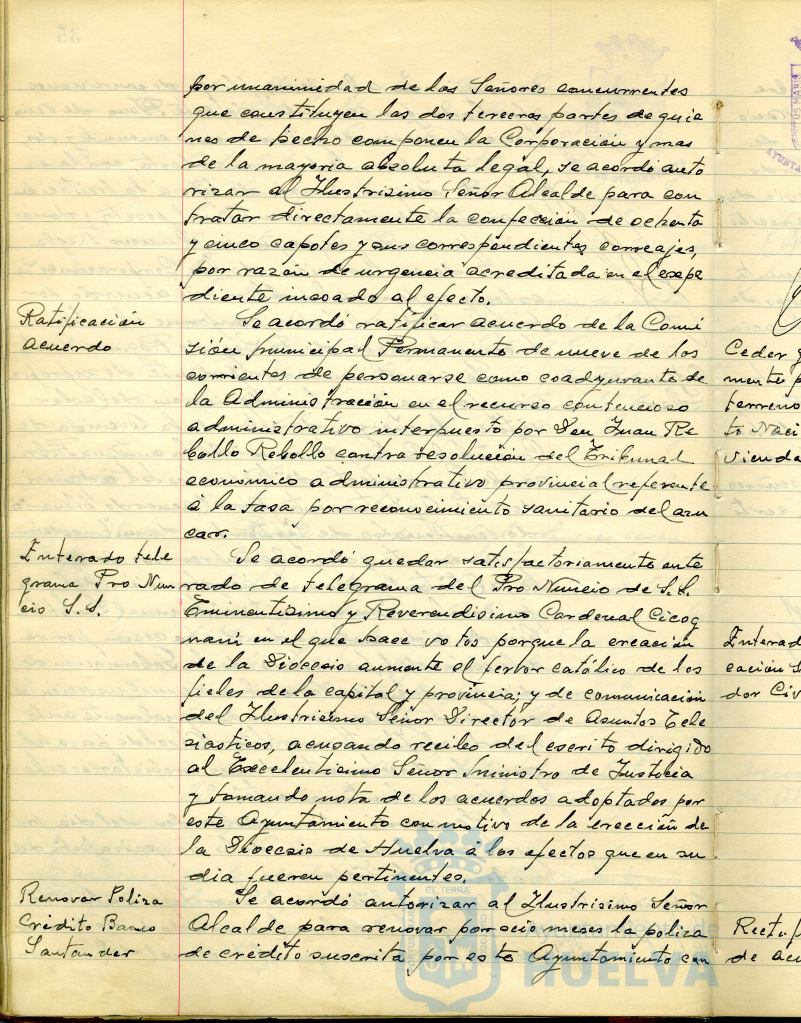 por unanimidad de los Señores concurrentes
que constituyen las dos terceras partes de quie
nes de hecho componen la Corporación y mas
de la mayoria absoluta legal, se acordó auto
rizar al Ilustrisimo Señor Alcalde para con
tratar directamente la confección de ochenta
y cinco capotes y sus correspondientes correajes,
por razón de urgencia acreditada en el expe
diente incoado al efecto.
Ratificación
acuerdo
Se acordó ratificar acuerdo de la Comi
sión municipal Permanente de nueve de los
corrientes de personarse como coadyuvante de
la Administración en el recurso contencioso
administrativo interpuesto por Don Juan Re
bollo Rebollo contra resolución del Tribunal
económico administrativo provincial referente
á la tasa por reconocimiento sanitario del azu
car.
Enterado tele
grama Pro Nun
cio S.S.
Se acordó quedar satisfactoriamente ente
rado de telegrama del Pro Nuncio de S.S.
Eminentisimo y Reverendisimo Cardenal Cicog
nani en el que hace votos porque la creación
de la Diocesis aumente el fervor católico de los
fieles de la capital y provincia; y de comunicación
del Ilustrisimo Señor Director de Asuntos Ecle
siasticos, acusando recibo del escrito dirigido
al Excelentisimo Señor Ministro de Justicia
y tomando nota de los acuerdos adoptados por
este Ayuntamiento con motivo de la erección de
la Diocesis de Huelva á los efectos que en su
dia fueren pertinentes.
Renovar Poliza
Crédito Banco
Santander
Se acordó autorizar al Ilustrisimo Señor
Alcalde para renovar por seis meses la poliza
de crédito suscrita por este Ayuntamiento con
HUELVA
Ceder
terreno
Enterad
cación
dor Civ
de acu